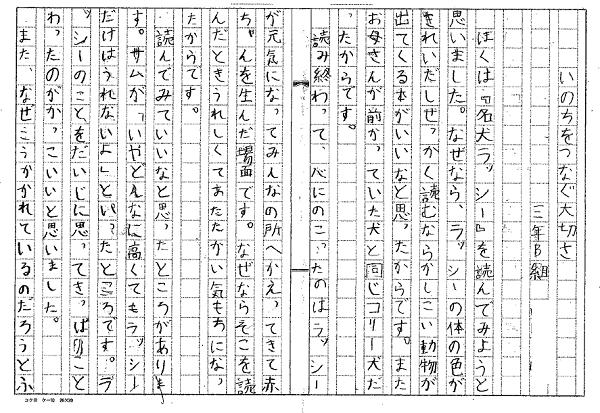 いのちをつなぐ大切さ
三年B組
ぼくは『名犬ラッシー』を読んでみようと
思いました。なぜなら、ラッシーの体の色が
きれいだしせっかく読むならかしこい動物が
出てくる本がいいなと思ったからです。また
お母さんが前かっていた犬と同じコリー犬だ
ったからです。
読み終わって、心にのこったのはラッシー
が元気になってみんなの所へかえってきて赤
ちゃんを生んだ場面です。なぜならそこを読
んだときうれしくてあたたかい気もちになっ
たからです。
読んでみていいなと思ったところがありま
す。サムが「いやどんなに高くてもラッシー
だけはうれないよ」といったところです。ラ
ッシーのことをだいじに思ってきっぱりこと
わったのがかっこいいと思いました。
また、なぜこうかかれているのだろうとふ
コクヨ ケー10 20×20